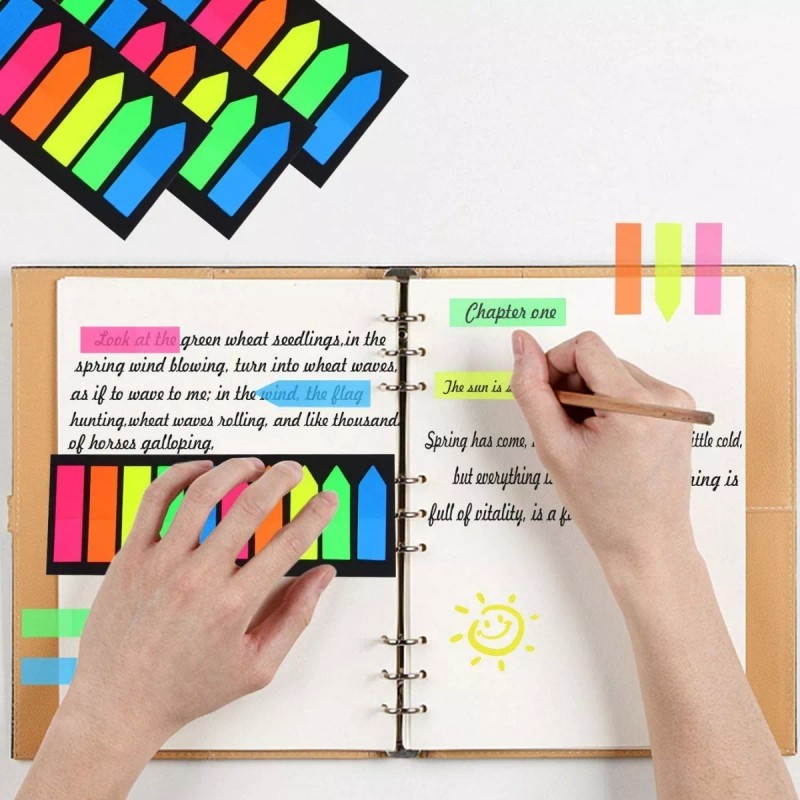 Look at the green wheat seedlings,in the
spring wind blowing, turn into wheat waves,
as if to wave to me; in the wind, the flag
hunting,wheat waves rolling, and like thousand
of horses galloping,
Chapter one
The sun is
Spring has come, little cold,
but everything is
full of vitality, is a